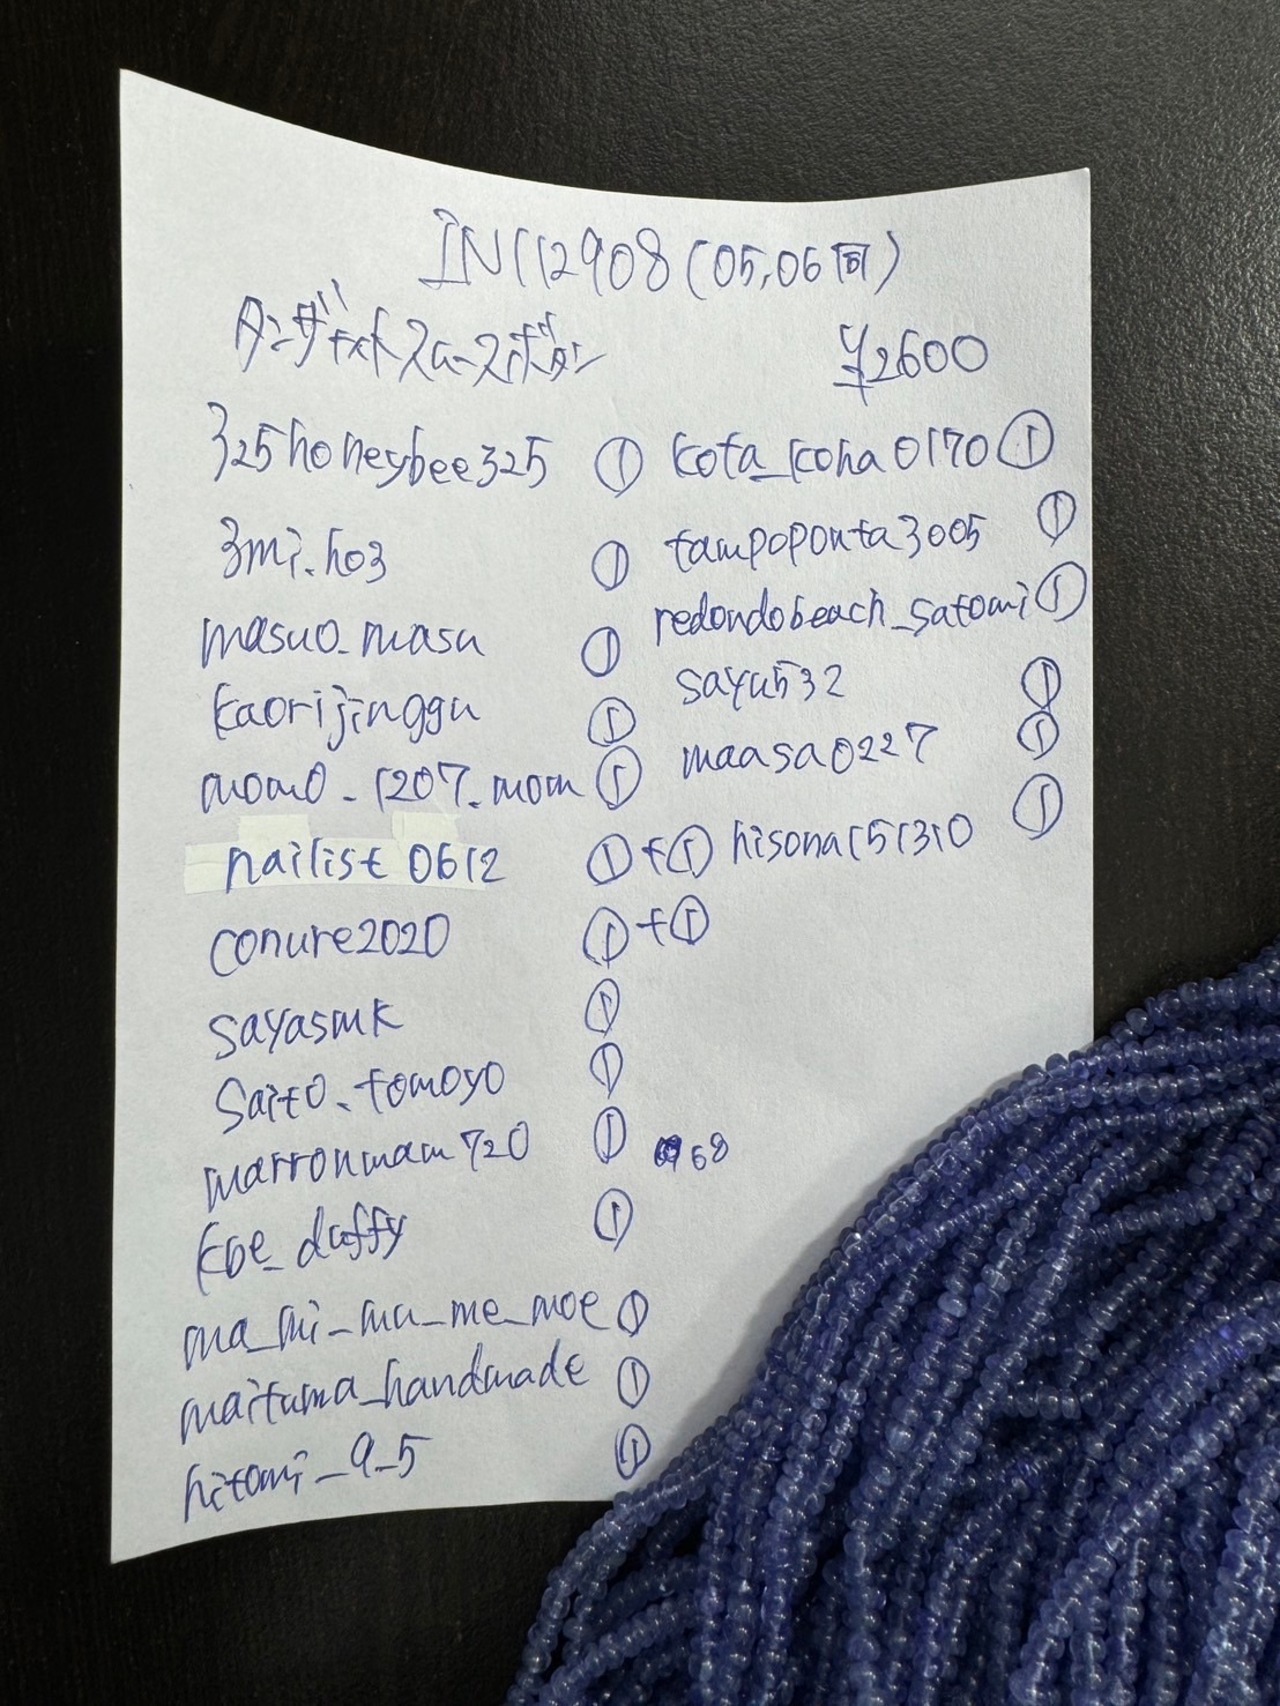 IN112908(05,06回)
タンザナイトスムースボタン
¥2600
325honeybee325 ①
3mi.ho3 ①
masuo_masu ①
kaorijinggu ①
momo_1207_mom ①
nailist0612 ①+①
conure2020 ①+①
sayasmk ①
saito.tomoyo ①
marronmam720 ① 68
koe_duffy ①
ma_mi_mu_me_moe ①
maituma_handmade ①
hitomi_9_5 ①
kota_koha0170 ①
tampoponta3005 ①
redondobeach_satomi ①
sayu532 ①
maasa0227 ①
hisona151310 ①